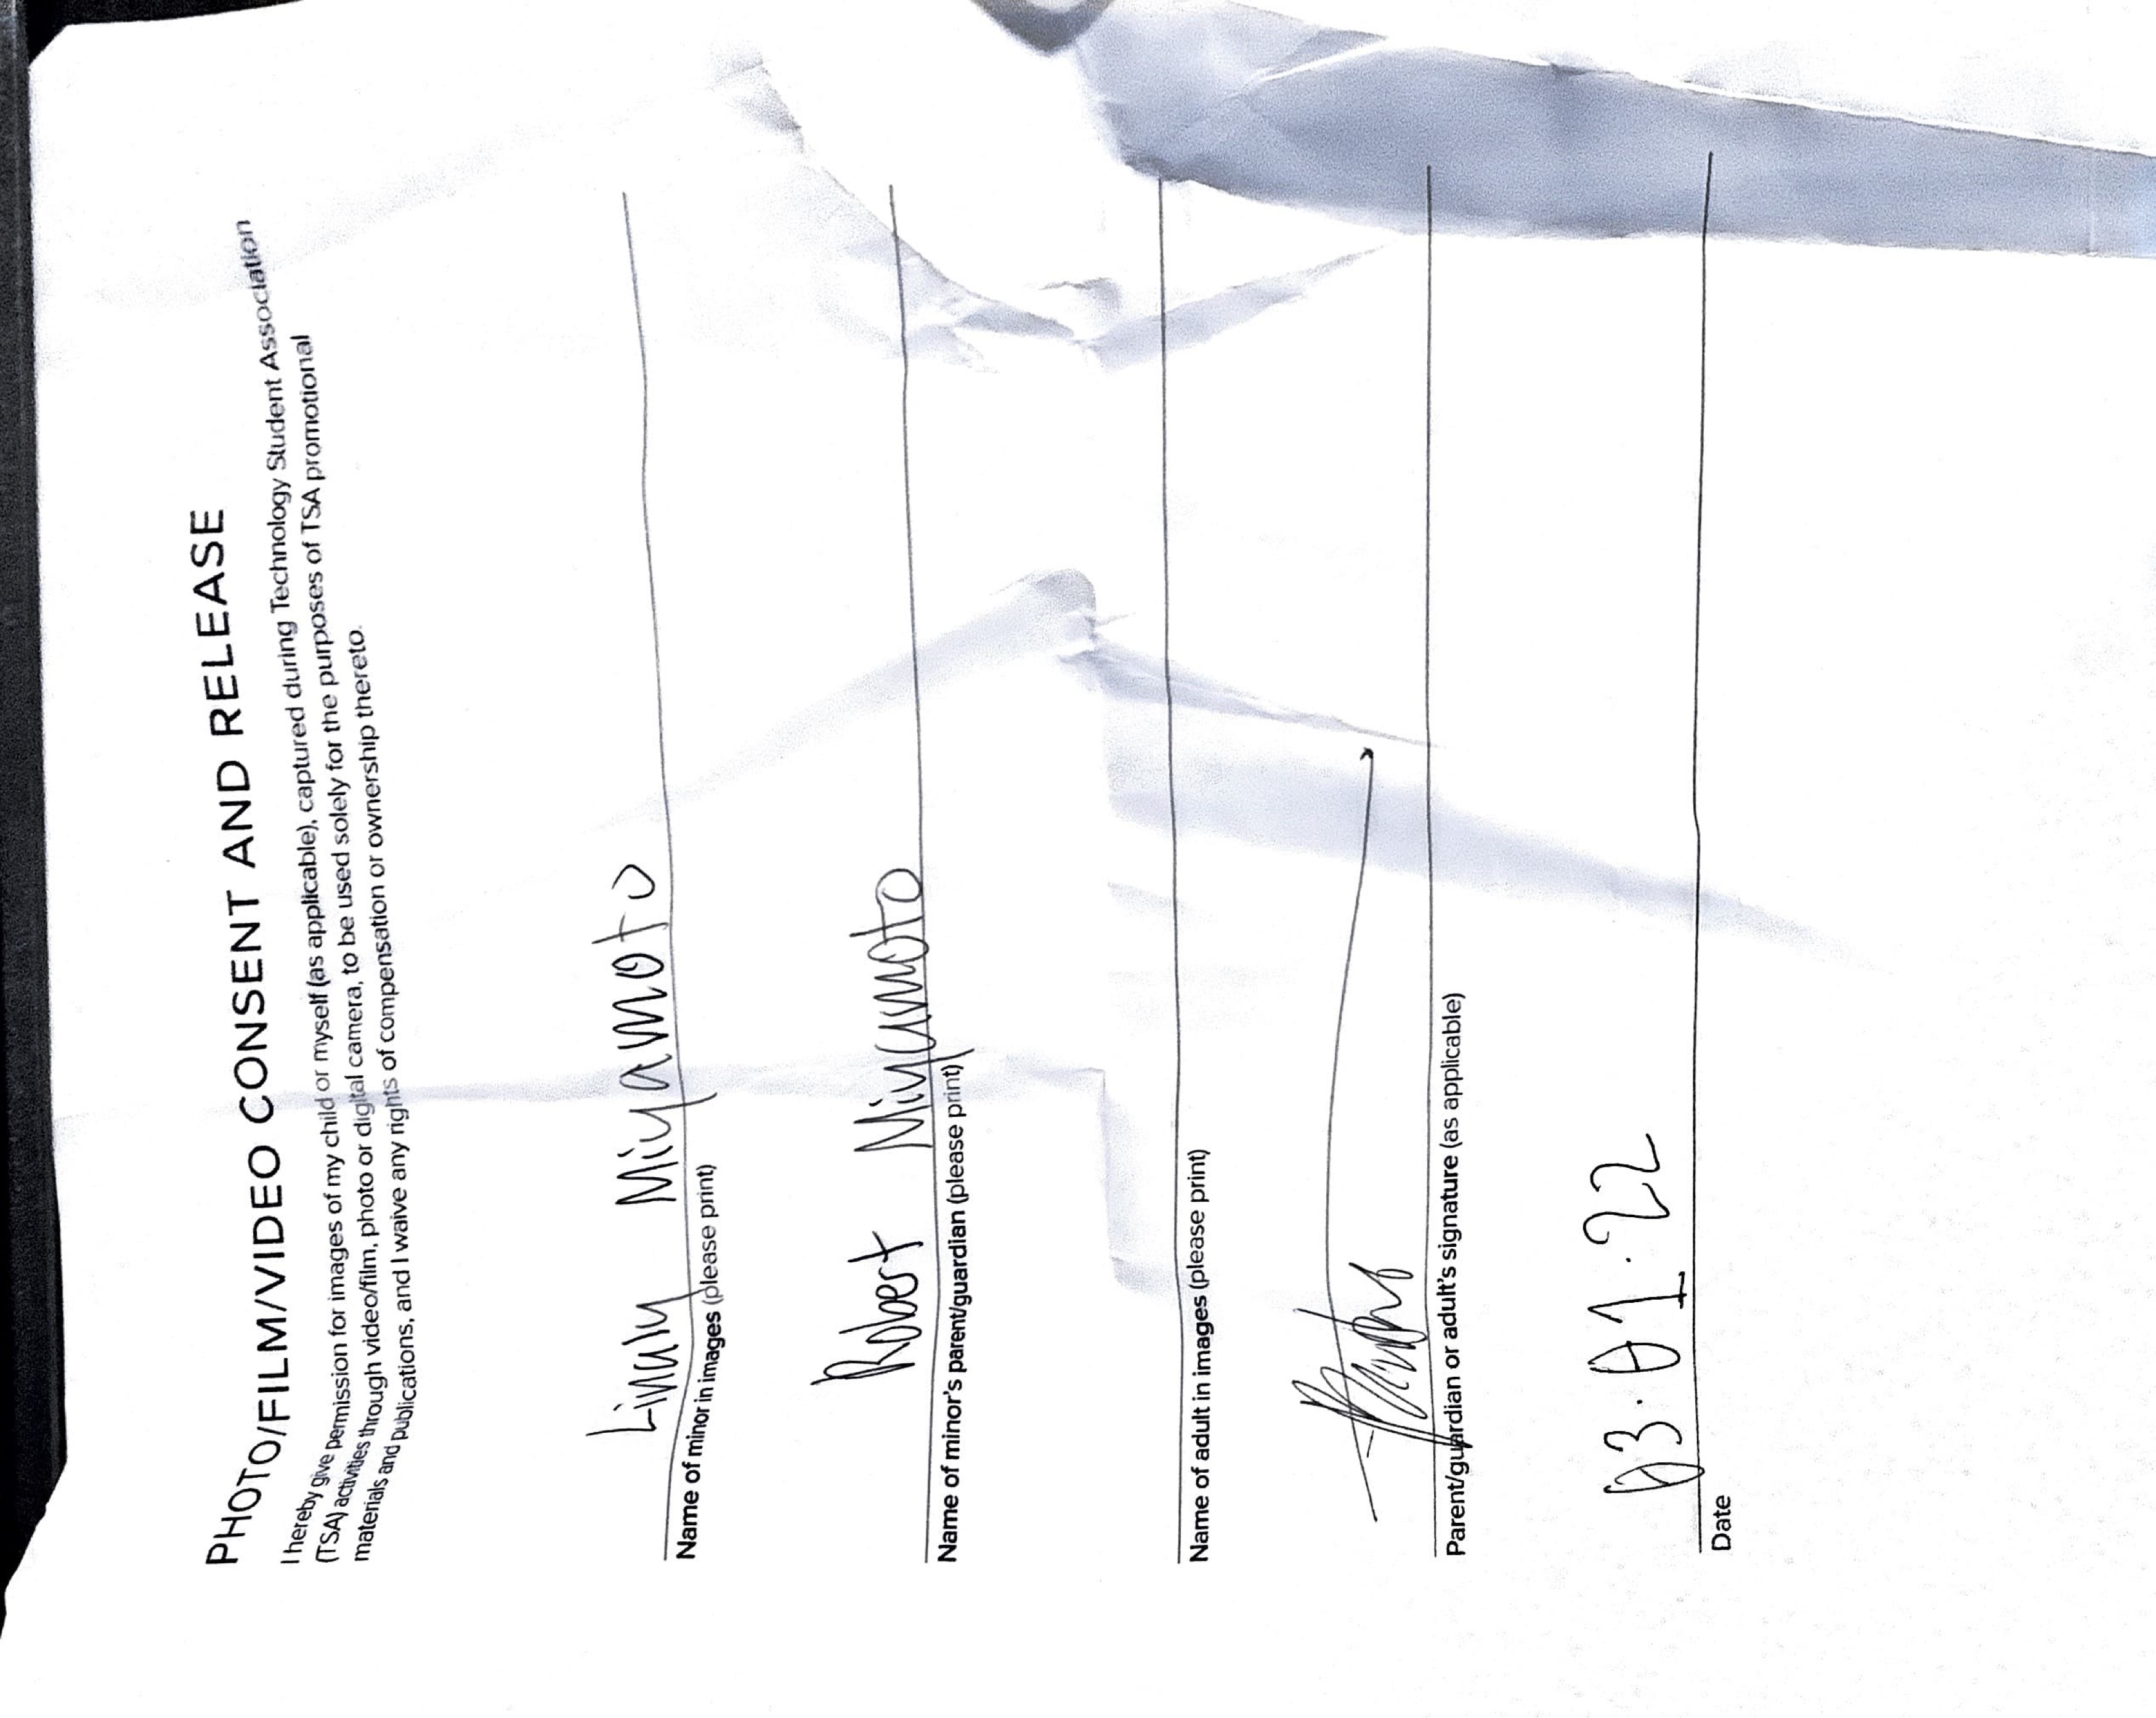 PHOTO/FILM/VIDEO CONSENT AND RELEASE
I hereby give permission for images of my child or myself (as applicable), captured during Technology Student Association
(TSA) activities through video/film, photo or digital camera, to be used solely for the purposes of TSA promotional
materials and publications, and I waive any rights of compensation or ownership thereto.
Miyamoto
Name of minor in images (please print)
Robert Miyamoto
Name of minor's parent/guardian (please print)
Name of adult in images (please print)
Parent/guardian or adult's signature (as applicable)
03.01.22
Date